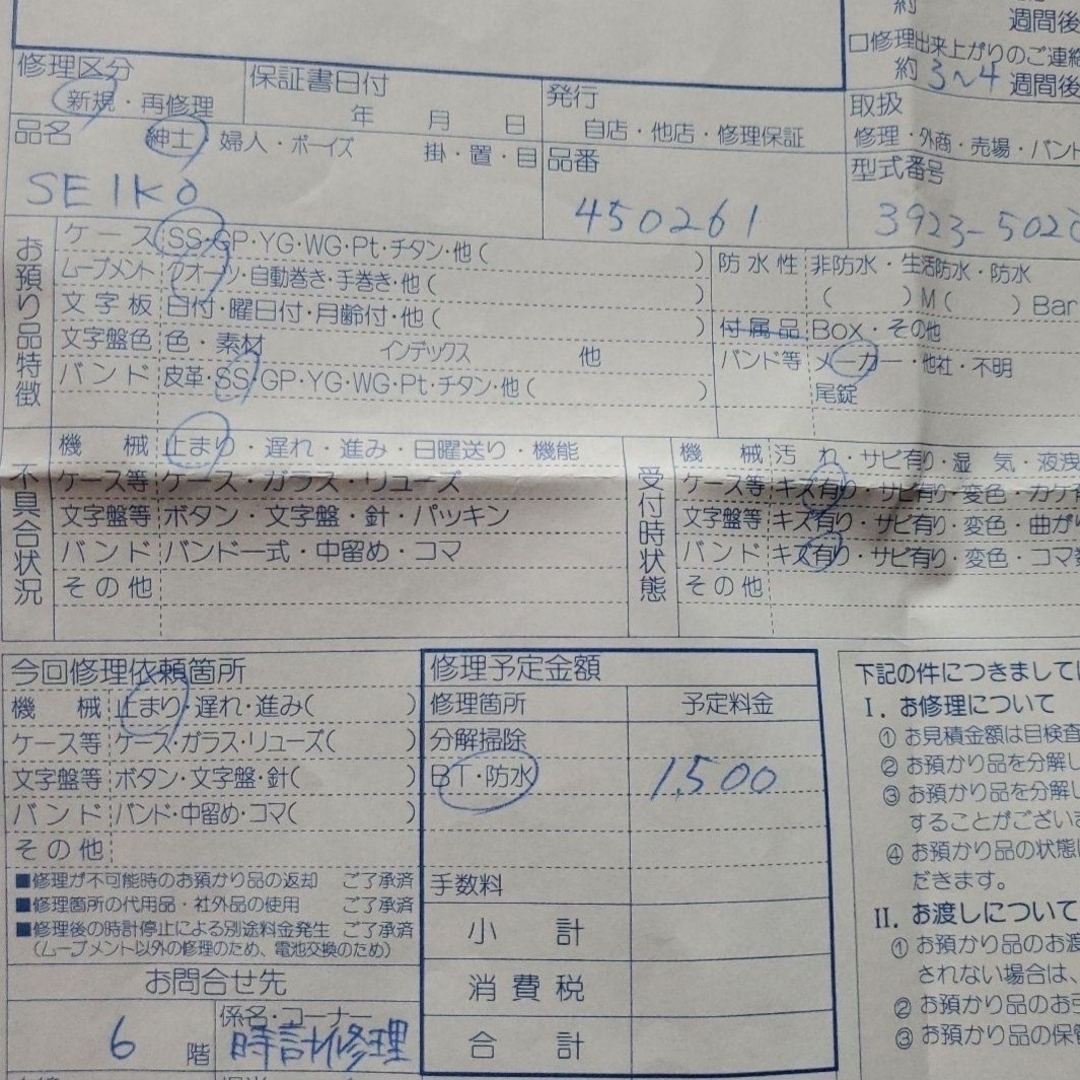 約
週間後
□修理出来上がりのご連絡
約 3~4 週間後
修理区分
新規・再修理
保証書日付
年 月 日
発行
自店・他店・修理保証
取扱
修理・外商・売場・バンド
品名
紳士・婦人・ボーイズ 掛・置・目
SEIKO
品番
450261
型式番号
3923-502
お預り品特徴
ケース SS・GP・YG・WG・Pt・チタン・他( )
ムーブメント クオーツ・自動巻き・手巻き・他( )
文字板 日付・曜日付・月齢付・他( )
文字盤色 色・素材 インデックス 他
バンド 皮革・SS・GP・YG・WG・Pt・チタン・他( )
防水性 非防水・生活防水・防水
( )M( )Bar
付属品 Box・その他
バンド等 メーカー・他社・不明
尾錠
不具合状況
機械 止まり・遅れ・進み・日曜送り・機能
ケース等 ケース・ガラス・リューズ
文字盤等 ボタン・文字盤・針・パッキン
バンド バンド一式・中留め・コマ
その他
受付時状態
機械 汚れ・サビ有り・湿気・液洩
ケース等 キズ有り・サビ有り・変色・カケ有
文字盤等 キズ有り・サビ有り・変色・曲がり
バンド キズ有り・サビ有り・変色・コマ数
その他
今回修理依頼箇所
機械 止まり・遅れ・進み( )
ケース等 ケース・ガラス・リューズ( )
文字盤等 ボタン・文字盤・針( )
バンド バンド・中留め・コマ( )
その他
■修理が不可能時のお預かり品の返却 ご了承済
■修理箇所の代用品・社外品の使用 ご了承済
■修理後の時計停止による別途料金発生 ご了承済
(ムーブメント以外の修理のため、電池交換のため)
お問合せ先
6 階
係名・コーナー
時計修理
修理予定金額
修理箇所 予定料金
分解掃除
BT・防水 1,500
手数料
小計
消費税
合計
下記の件につきましては
I. お修理について
① お見積金額は目検査
② お預かり品を分解し
③ お預かり品を分解し
することがございま
④ お預かり品の状態に
だきます。
II. お渡しについて
① お預かり品のお渡
されない場合は、
② お預かり品のお引
③ お預かり品の保管